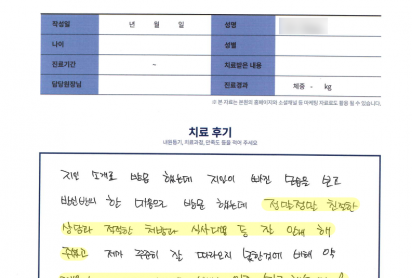 작성일 년 월 일 성명
나이 성별
진료기간 ~ 치료받은 내용
담당원장님 진료경과 체중 - kg
※ 본 자료는 본원의 홈페이지와 소셜채널 등 마케팅 자료로도 활용 될 수 있습니다.
치료 후기
내원동기, 치료과정, 만족도 등을 적어 주세요
지인 소개로 방문 했는데 지인이 빠진 모습을 보고
반신반의 한 마음으로 방문 했는데 정말정말 친절한
상담과 적절한 처방과 식사디텍 등 잘 안내 해
주셨고 제가 꾸준히 잘 따라오지 못한것에 비해 약